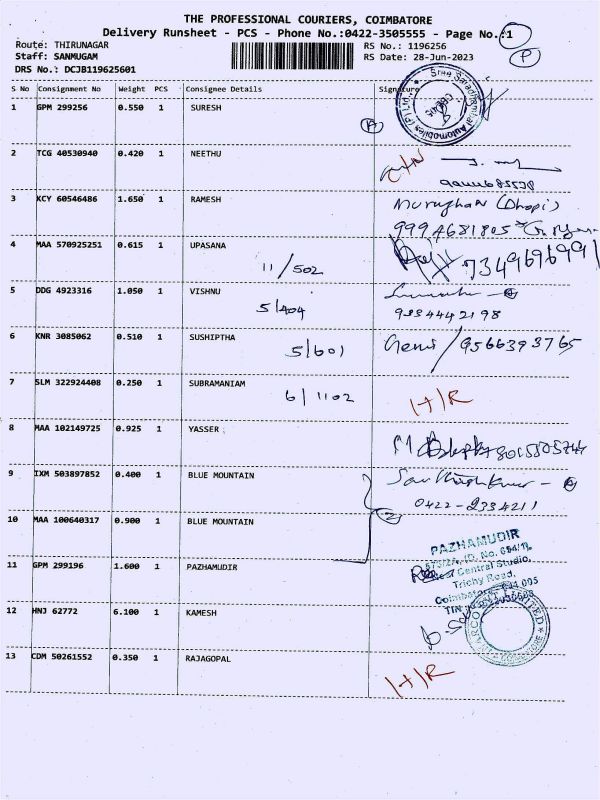 THE PROFESSIONAL COURIERS, COIMBATORE
Delivery Runsheet - PCS - Phone No.:0422-3505555 - Page No.:1
Route: THIRUNAGAR RS No.: 1196256
Staff: SANMUGAM RS Date: 28-Jun-2023
DRS No.: DCJB119625601
P
S No Consignment No Weight PCS Consignee Details Signature
1 GPM 299256 0.550 1 SURESH
2 TCG 40530940 0.420 1 NEETHU
3 KCY 60546486 1.650 1 RAMESH Murughan (Dhopi)
9994681805
4 MAA 570925251 0.615 1 UPASANA
11/502 7349696991
5 DDG 4923316 1.050 1 VISHNU
5/404 9334442198
6 KNR 3085062 0.510 1 SUSHIPTHA
5/601 9566393765
7 SLM 322924408 0.250 1 SUBRAMANIAM
6/1102 I+/R
8 MAA 102149725 0.925 1 YASSER
9 IXM 503897852 0.400 1 BLUE MOUNTAIN
0422-2334211
10 MAA 100640317 0.900 1 BLUE MOUNTAIN
2
PAZHAMUDIR
11 GPM 299196 1.600 1 PAZHAMUDIR
Central Studio,
Trichy Road,
12 HNJ 62772 6.100 1 KAMESH
13 CDM 50261552 0.350 1 RAJAGOPAL
I+/R